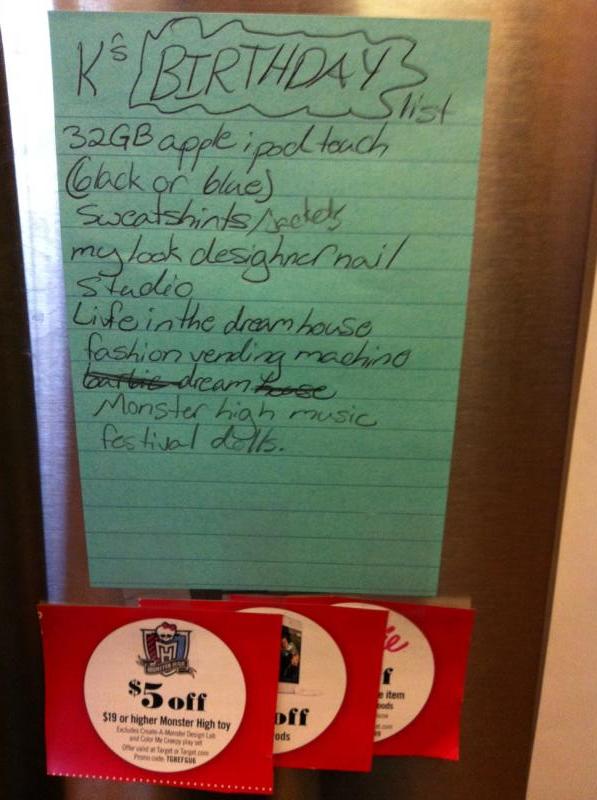 K's BIRTHDAY list
32GB apple ipod touch
(black or blue)
Sweatshirts/Jackets
my look designner nail
studio
Livfe in the dreamhouse
fashion vending machine
barbie dream house
Monster high music
festival dolls.
MONSTER HIGH
$5 off
$19 or higher Monster High toy
Excludes Create-A-Monster Design Lab
and Color Me Creepy play set
Offer valid at Target or Target.com
Promo code: TGREFGU6
off
ods
ie
f
e item
oods